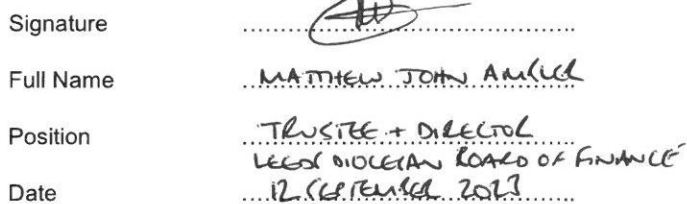 Signature
Full Name MATTHEW JOHN AMBLER
Position TRUSTEE + DIRECTOR
LEEDS DIOCESAN BOARD OF FINANCE
Date 12 SEPTEMBER 2023